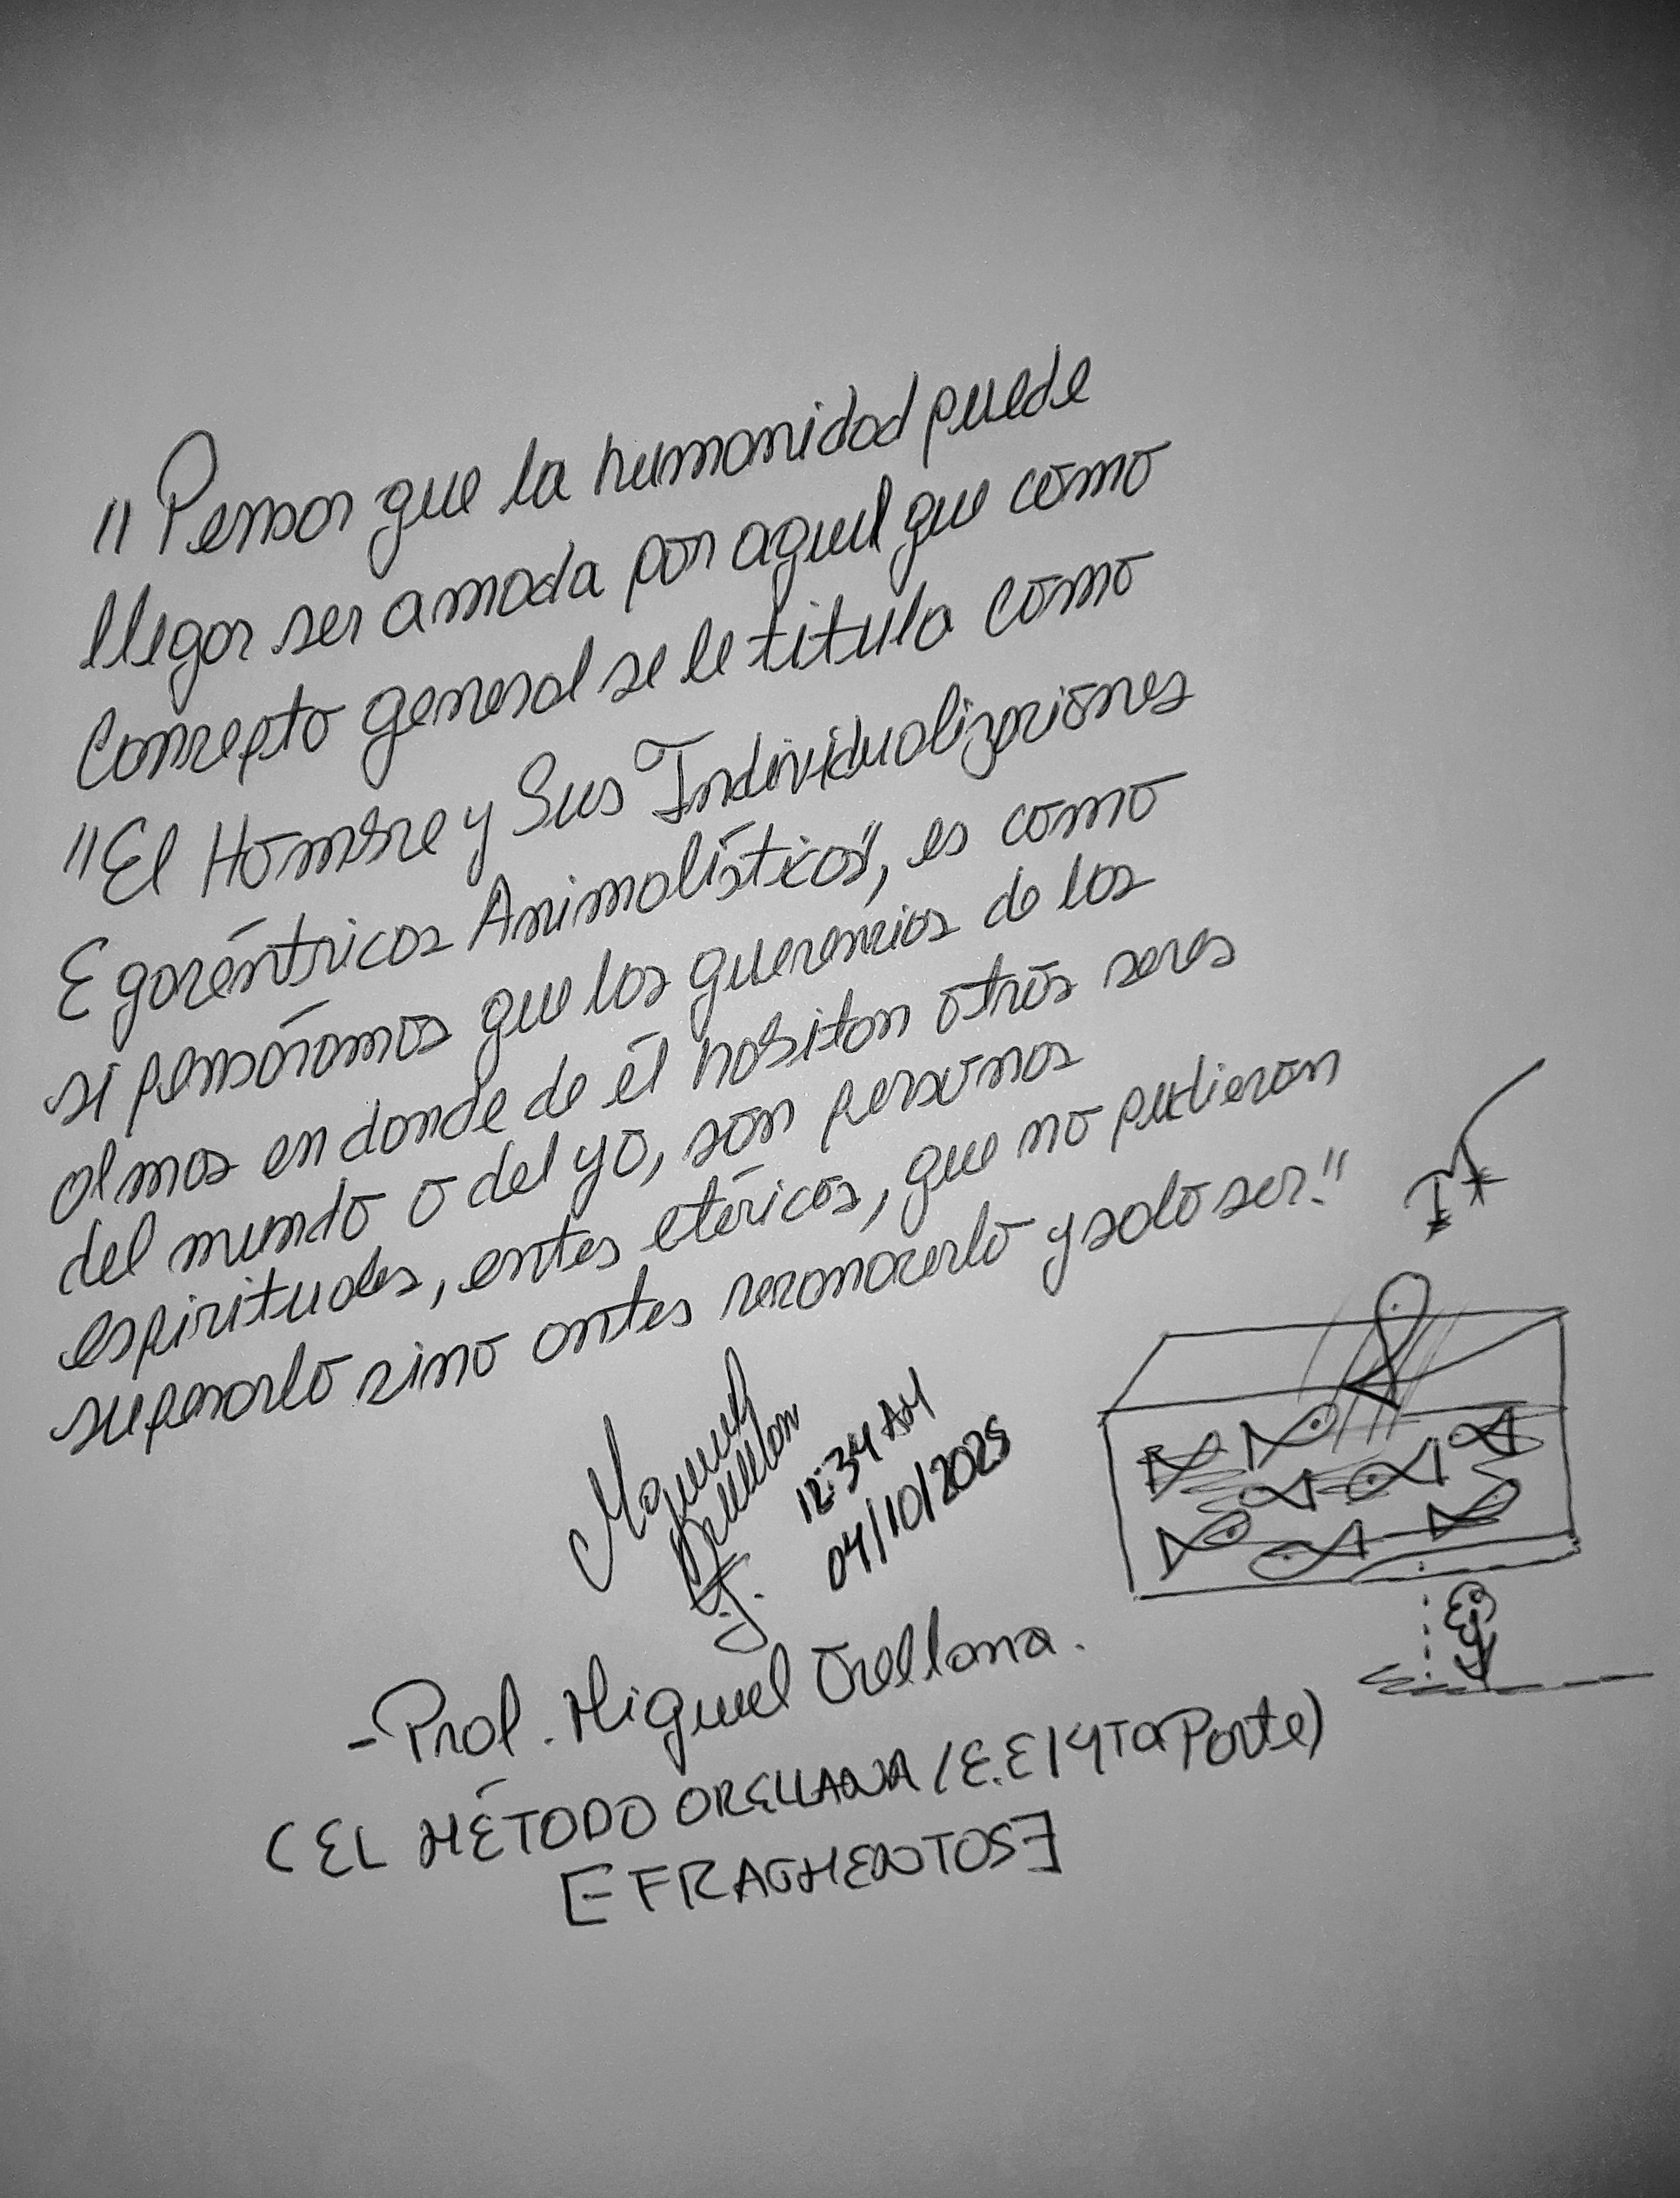 "Pensar que la humanidad puede
llegar ser amada por aquel que como
concepto general se le titula como
"El Hombre y Sus Individualizaciones
Egocéntricas Animalísticas", es como
si pensáramos que las querencias de las
almas en donde de él habitan otros seres
del mundo o del yo, son personas
espirituales, entes etéricos, que no pudieron
superarlo sino antes reconocerlo y solo ser."
12:34 AM
04/10/2025
-Prof. Miguel Orellana.
(EL MÉTODO ORELLANA/E.E/4Ta Parte)
[FRAGMENTOS]